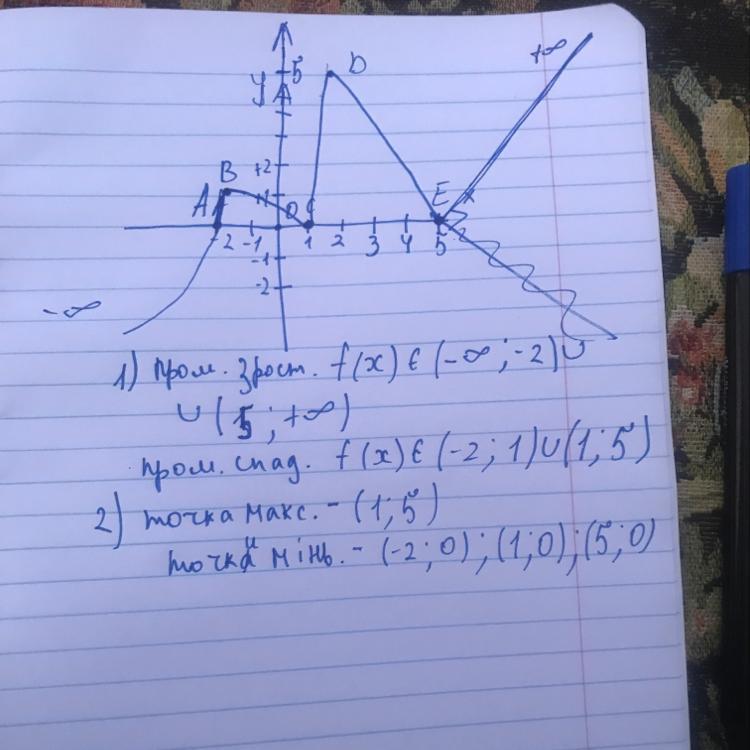 +∞
y 5 D
B +2
A +1 0 C E x
-2 -1 1 2 3 4 5
-1
-2
-∞
1) пром. зрост. f(x) ∈ (-∞; -2) ∪
∪ (5; +∞)
пром. спад. f(x) ∈ (-2; 1) ∪ (1; 5)
2) точка макс. - (1; 5)
точки мінь. - (-2; 0); (1; 0); (5; 0)